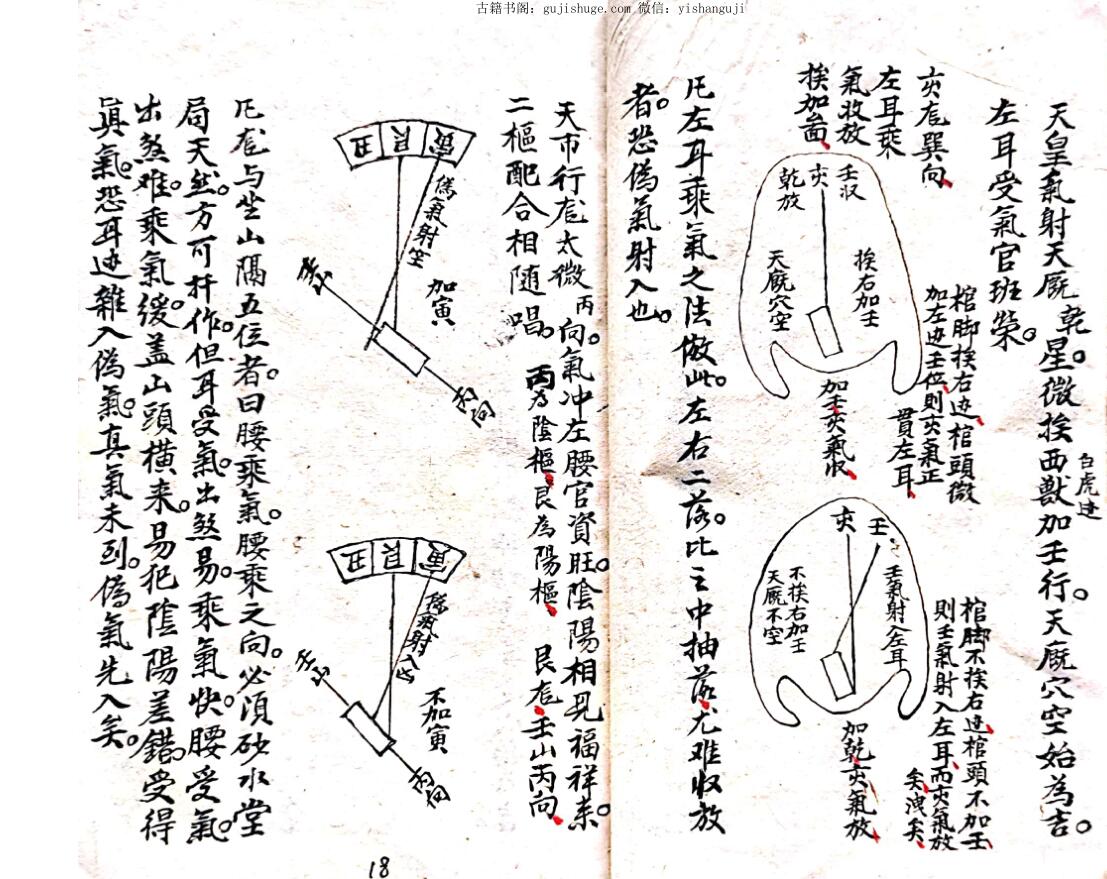 古籍书阁：gujishuge.com 微信：yishanguji
天皇氣射天厩乾星。微挨西獸加壬行。天厩穴空始為吉。
白虎边
左耳受氣官班榮。
亥龙巽向
左耳乘
氣收放
挨加圖
壬収
亥
乾放
挨右加壬
天厩穴空
棺脚挨右边棺頭微
加左边壬位則亥氣正
貫左耳
加壬亥氣収
亥
壬
壬氣射入左耳
不挨右加壬
天厩不空
棺脚不挨右边棺頭不加壬
則壬氣射入左耳而亥氣放
矣洩矣
加乾亥氣放
凡左耳乘氣之法倣此。左右二落。比之中抽落尤难収放
者。恐偽氣射入也。
天市行龙太微丙向。氣冲左腰官資旺陰陽相見福祥素。
二樞配合相随唱。丙為陰樞艮為陽樞 艮龙壬山丙向
丑艮寅
偽氣射空
加寅
壬山
丙向
丑艮寅
射入
不加寅
壬山
丙向
凡龙与坐山隔五位者。曰腰乘氣。腰乘之向。必須砂水堂
局天然。方可扦作。但耳受氣。出煞易。乘氣快。腰受氣。
出煞难。乘氣缓。盖山頭横来。易犯陰陽差錯。受得
真氣。恐耳边雜入偽氣。真氣未到。偽氣先入矣。
18